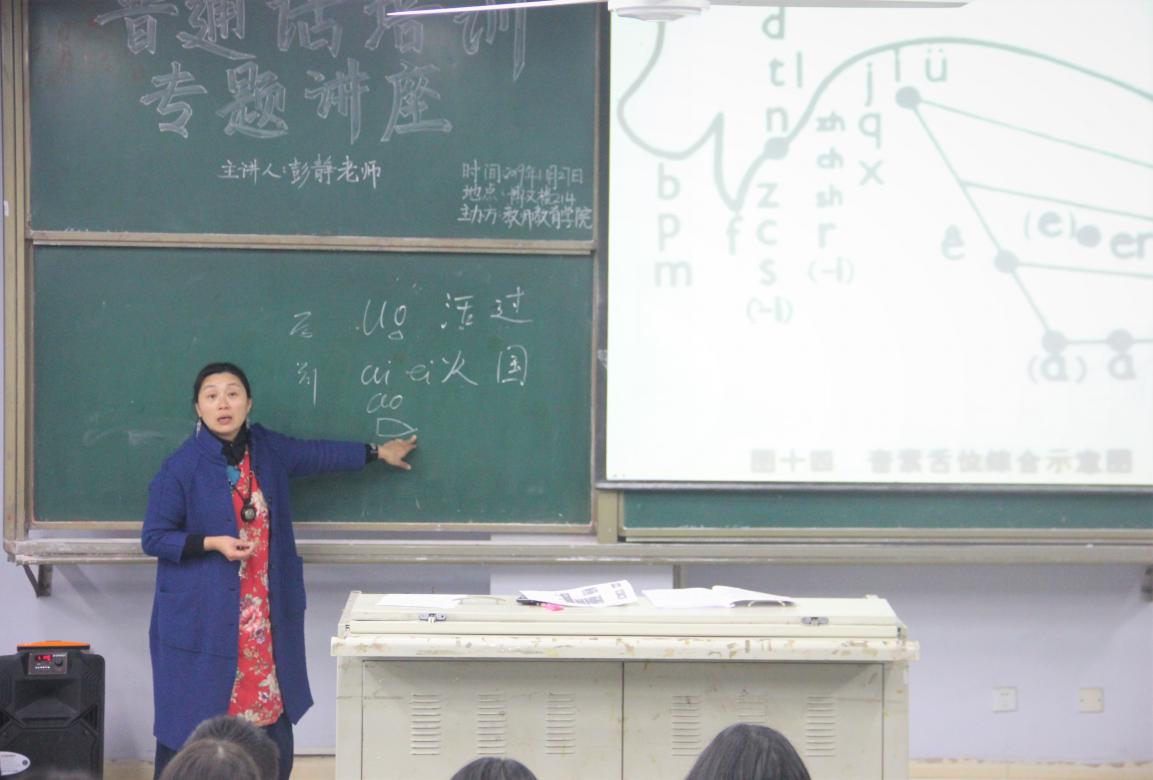 普通话培训
专题讲座
主讲人:彭静老师
时间:2019年11月27日
地点:
主办方:教师教育学院
uo 活 过
ai ei 火 国
ao
d
t l
n
b
p
m
f
z
c
s
(-i)
zh
ch
sh
r
(-i)
j
q
x
i ü
ê
(e) er
(a) a
图十四 音素舌位综合示意图